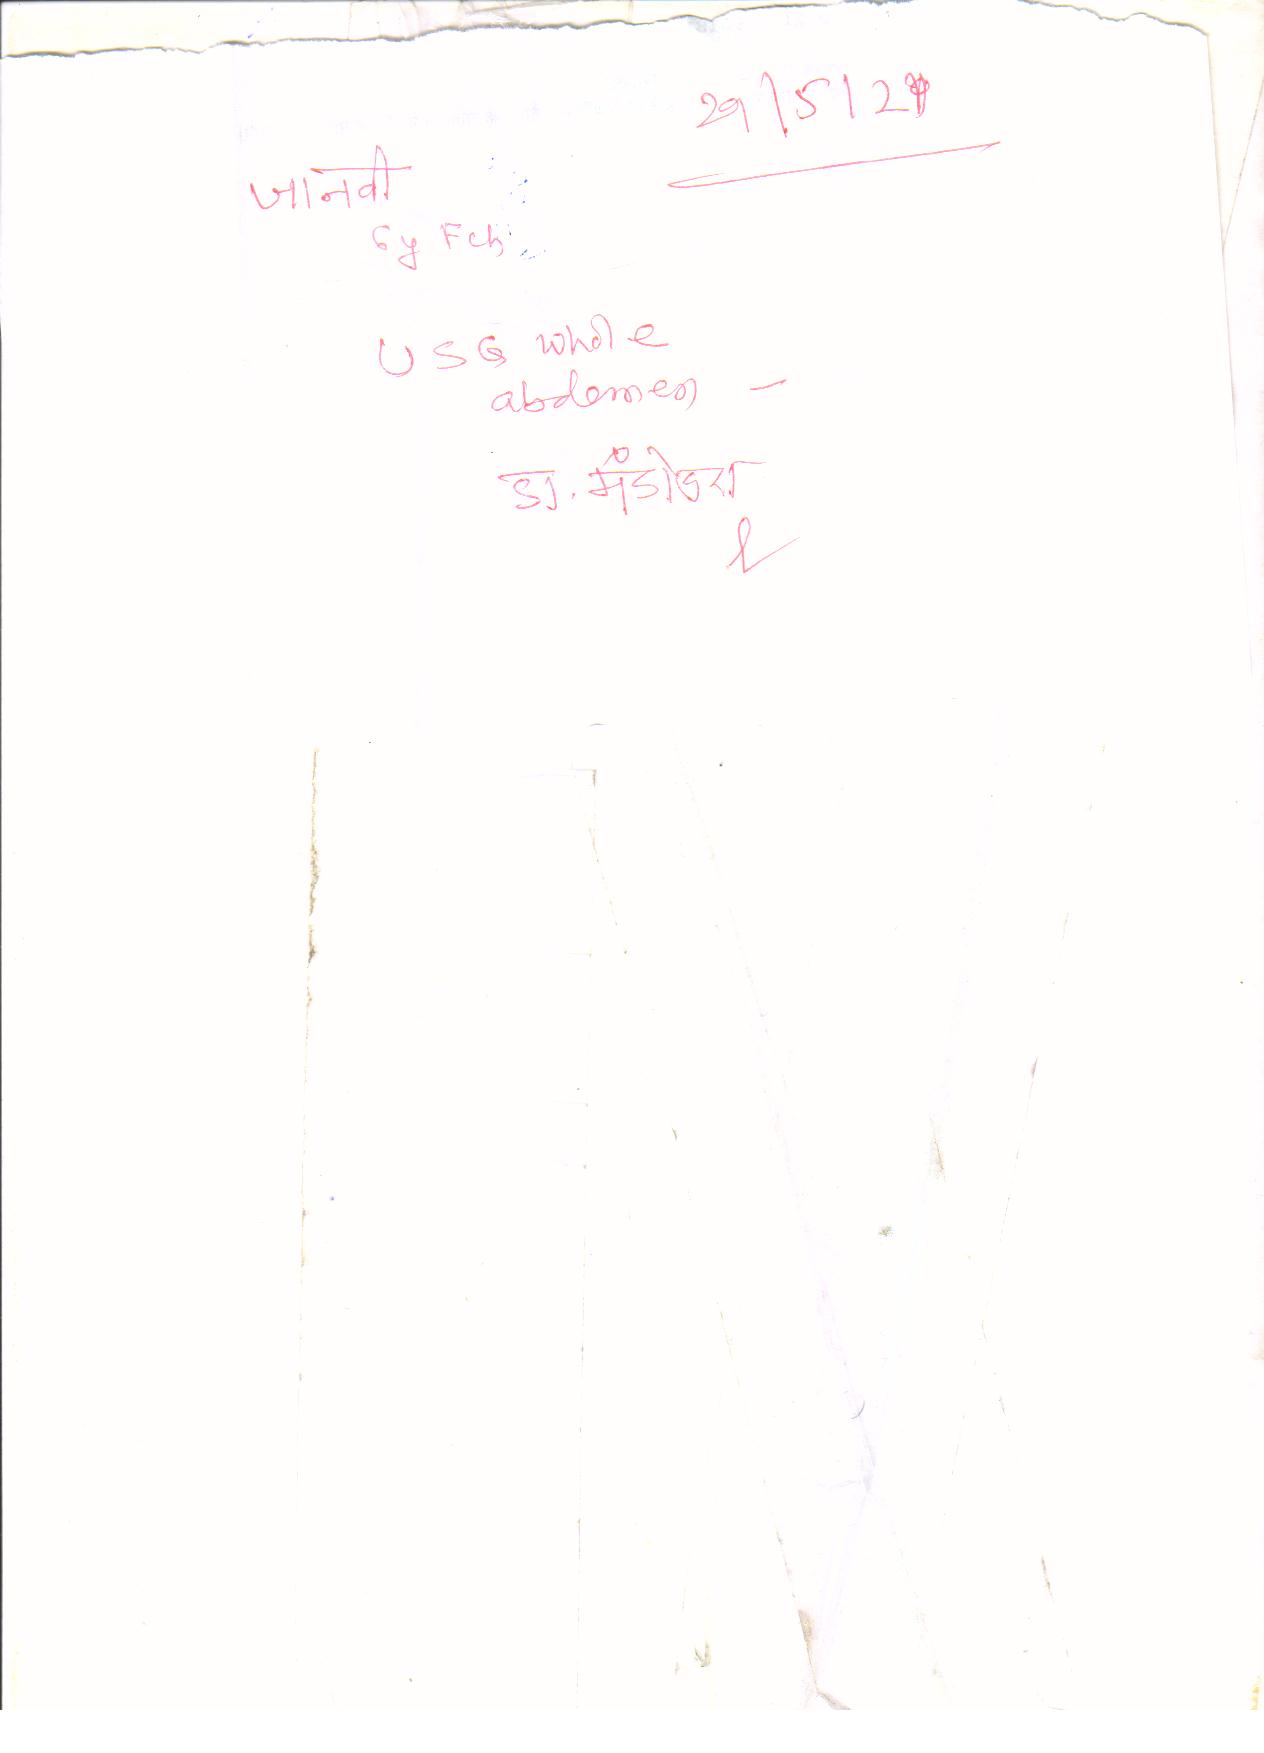 29/5/24
जानवी
6y Fch
USG whole
abdomen -
डॉ. मंडोवरा